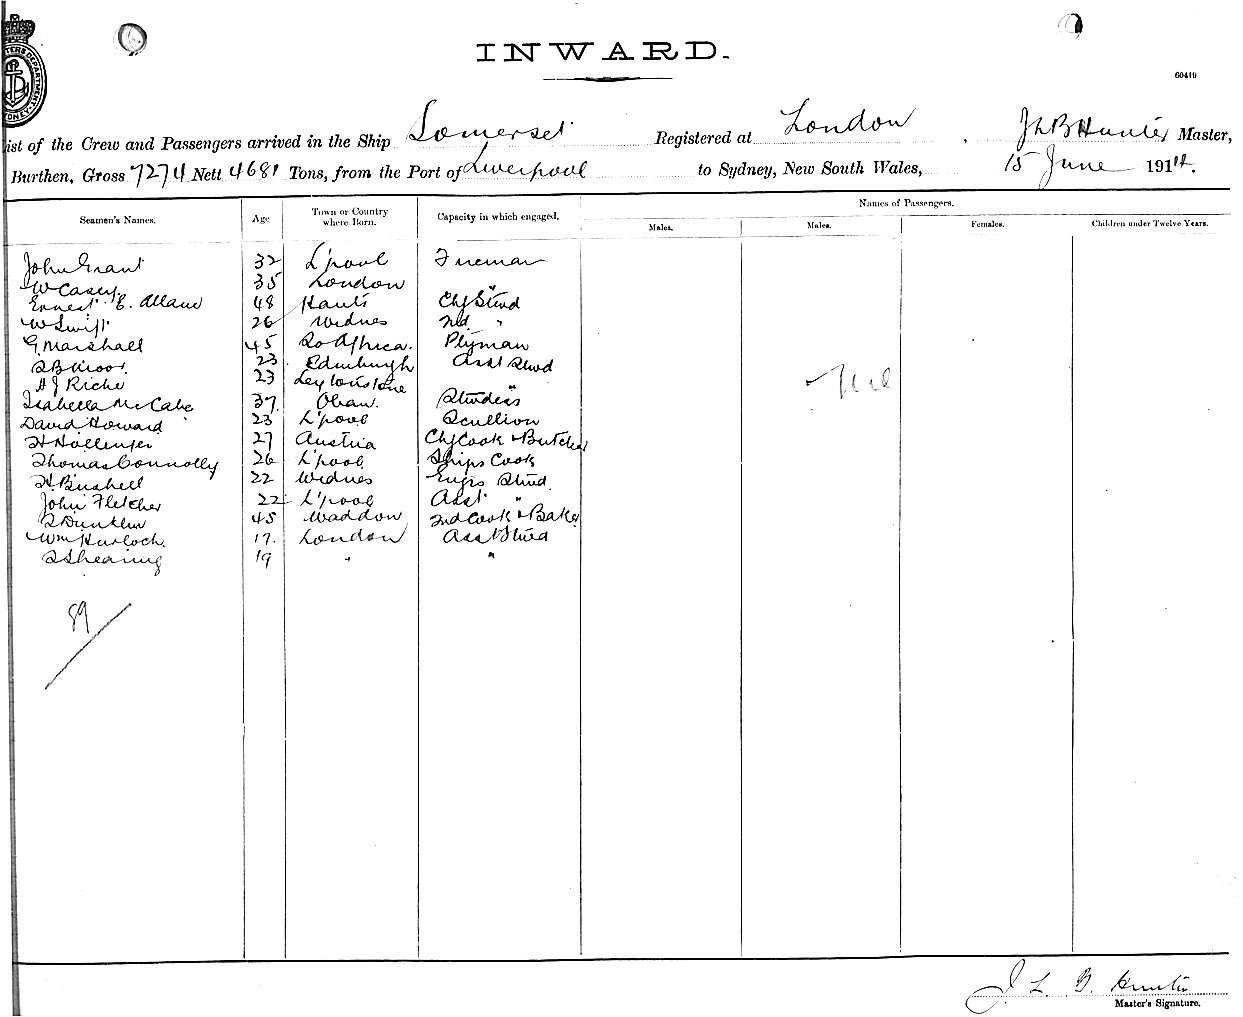 INWARD.
60419
ist of the Crew and Passengers arrived in the Ship Somerset Registered at London, J L B Hunter Master,
Burthen, Gross 7274 Nett 4681 Tons, from the Port of Liverpool to Sydney, New South Wales, 15 June 1914.
Names of Passengers.
Seamen's Names. Age Town or Country where Born. Capacity in which engaged. Males. Males. Females. Children under Twelve Years.
John Grant 32 L'pool Fireman
W Casey 35 London "
Ernest E. Allan 48 Hants Chf Stwd
W Swift 26 Widnes 2nd "
G. Marshall 45 So Africa. Ptyman
23 Edinburgh Asst Stwd
Nil
H J Riche 23 Leytonstone "
Isabella McCabe 37. Oban. Studess
David Howard 23 L'pool Scullion
H Hollenger 27 Austria Chf Cook & Butcher
Thomas Connolly 26 L'pool Ships Cook
H. Bushell 22 Widnes Engrs Stwd.
John Fletcher 22 L'pool Asst "
45 Waddon 2nd Cook & Baker
Wm Hurloch. 17. London Asst Stwd
S Shearing 19 " "
89
J. L. B. Hunter
Master's Signature.